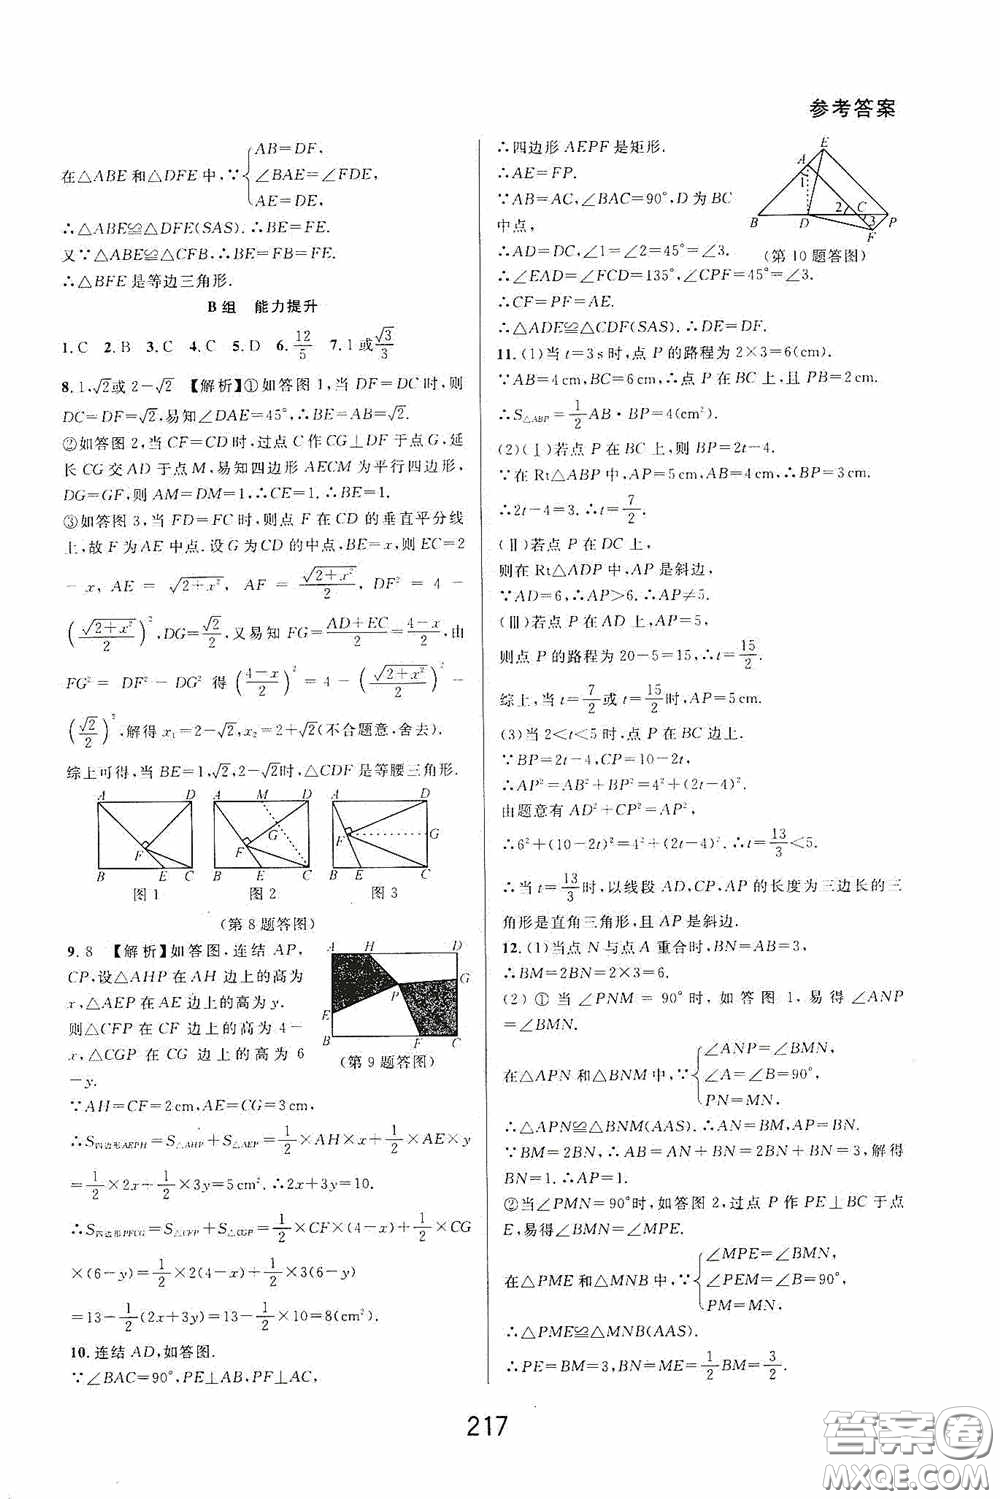 参考答案
在△ABE和△DFE中,∵{AB=DF,
∠BAE=∠FDE,
AE=DE,
∴△ABE≌△DFE(SAS).∴BE=FE.
又∵△ABE≌△CFB.∴BE=BF.
∴△BFE是等边三角形.
B组 能力提升
1.C 2.B 3.C 4.C 5.D 6.12/5 7.1或√3/3
8.1,√2或2-√2 【解析】①如答图1,当DF=DC时,则
DC=DF=√2,易知∠DAE=45°,∴BE=AB=√2.
②如答图2,当CF=CD时,过点C作CG⊥DF于点G,延
长CG交AD于点M,易知四边形AECM为平行四边形,
DG=GF,则AM=DM=1,∴CE=1.∴BE=1.
③如答图3,当FD=FC时,则点F在CD的垂直平分线
上,故F为AE中点.设G为CD的中点,BE=x,则EC=2
-x, AE = √(2+x²), AF = √(2+x²)/2, DF² = 4 -
(√(2+x²)/2)²,DG=√2/2,又易知FG=(AD+EC)/2=(4-x)/2,由
FG² = DF²-DG² 得 ((4-x)/2)² = 4 - (√(2+x²)/2)² -
(√2/2)²,解得x₁=2-√2,x₂=2+√2(不合题意,舍去).
综上可得,当BE=1,√2,2-√2时,△CDF是等腰三角形.
A D A M D A D
G
F F F G
B E C B E C B E C
图1 图2 图3
(第8题答图)
9.8 【解析】如答图,连结AP,
CP,设△AHP在AH边上的高为
x,△AEP在AE边上的高为y.
则△CFP在CF边上的高为4-
x,△CGP在CG边上的高为6
-y.
A H D
G
P
E
B F C
(第9题答图)
∵AH=CF=2cm,AE=CG=3cm,
∴S四边形AEPH=S△AHP+S△AEP=1/2×AH×x+1/2×AE×y
=1/2×2x+1/2×3y=5cm².∴2x+3y=10.
∴S四边形PFCG=S△CFP+S△CGP=1/2×CF×(4-x)+1/2×CG
×(6-y)=1/2×2(4-x)+1/2×3(6-y)
=13-1/2(2x+3y)=13-1/2×10=8(cm²).
10.连结AD,如答图.
∵∠BAC=90°,PE⊥AB,PF⊥AC,
∴四边形AEPF是矩形.
∴AE=FP.
∵AB=AC,∠BAC=90°,D为BC
中点,
∴AD=DC,∠1=∠2=45°=∠3.
∴∠EAD=∠FCD=135°,∠CPF=45°=∠3.
∴CF=PF=AE.
∴△ADE≌△CDF(SAS).∴DE=DF.
E
A
1
2 C
B D 3 P
F
(第10题答图)
11.(1)当t=3s时,点P的路程为2×3=6(cm).
∵AB=4cm,BC=6cm,∴点P在BC上,且PB=2cm.
∴S△ABP=1/2AB·BP=4(cm²).
(2)(Ⅰ)若点P在BC上,则BP=2t-4.
∵在Rt△ABP中,AP=5cm,AB=4cm,∴BP=3cm.
∴2t-4=3.∴t=7/2.
(Ⅱ)若点P在DC上,
则在Rt△ADP中,AP是斜边,
∵AD=6,∴AP>6.∴AP≠5.
(Ⅲ)若点P在AD上,AP=5,
则点P的路程为20-5=15,∴t=15/2.
综上,当t=7/2或t=15/2时,AP=5cm.
(3)当2<t<5时,点P在BC边上.
∵BP=2t-4,CP=10-2t,
∴AP²=AB²+BP²=4²+(2t-4)².
由题意有AD²+CP²=AP²,
∴6²+(10-2t)²=4²+(2t-4)².∴t=13/3<5.
∴当t=13/3时,以线段AD,CP,AP的长度为三边长的三
角形是直角三角形,且AP是斜边.
12.(1)当点N与点A重合时,BN=AB=3,
∴BM=2BN=2×3=6.
(2)①当∠PNM=90°时,如答图1,易得∠ANP
=∠BMN.
在△APN和△BNM中,∵{∠ANP=∠BMN,
∠A=∠B=90°,
PN=MN.
∴△APN≌△BNM(AAS).∴AN=BM,AP=BN.
∵BM=2BN,∴AB=AN+BN=2BN+BN=3,解得
BN=1.∴AP=1.
②当∠PMN=90°时,如答图2,过点P作PE⊥BC于点
E,易得∠BMN=∠MPE.
在△PME和△MNB中,∵{∠MPE=∠BMN,
∠PEM=∠B=90°,
PM=MN,
∴△PME≌△MNB(AAS).
∴PE=BM=3,BN=ME=1/2BM=3/2.
217
答案圈
MXQE.COM